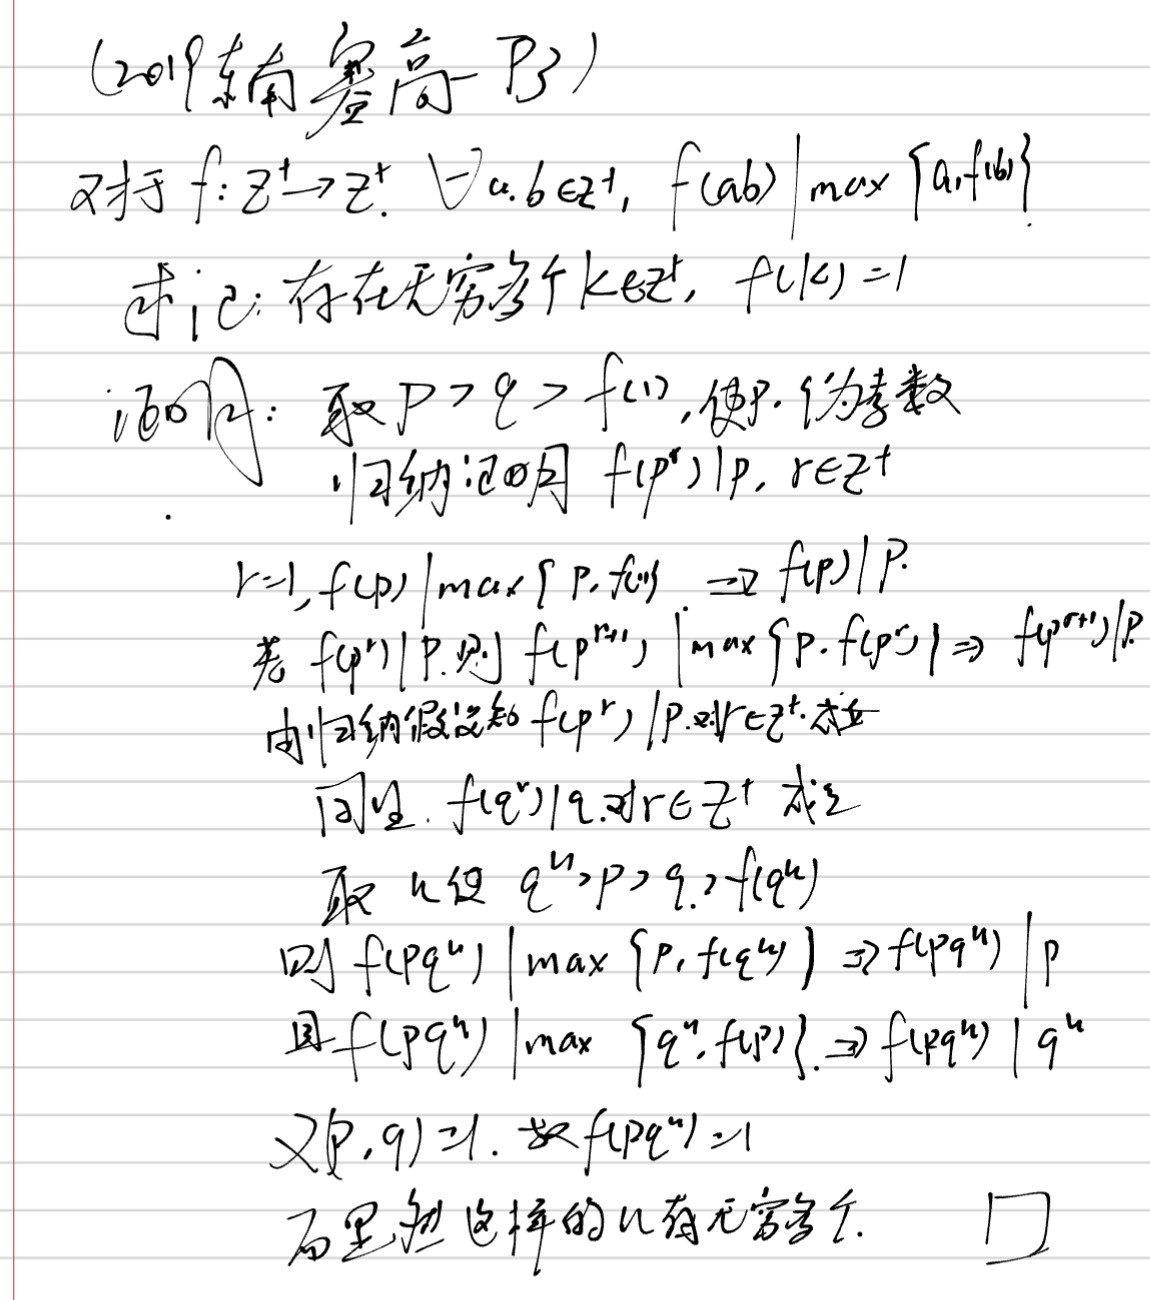 (2019东南赛高一P3)
对于 f: Z⁺→Z⁺. ∀a.b∈Z⁺, f(ab) | max {a, f(b)}.
求证: 存在无穷多个 k∈Z⁺, f(k) = 1
证明: 取 p > q > f(1), 使p.q为素数
归纳证明 f(pʳ) | p, r∈Z⁺
r=1, f(p) | max{p, f(1)} ⇒ f(p) | p.
若 f(pʳ) | p. 则 f(pʳ⁺¹) | max{p. f(pʳ)} ⇒ f(pʳ⁺¹) | p.
由归纳假设知 f(pʳ) | p.对r∈Z⁺.成立
同理. f(qʳ) | q.对r∈Z⁺ 成立
取 n使 qⁿ > p > q ≥ f(qⁿ)
则 f(pqⁿ) | max {p, f(qⁿ)} ⇒ f(pqⁿ) | p
且 f(pqⁿ) | max {qⁿ, f(p)}. ⇒ f(pqⁿ) | qⁿ
又(p, q) = 1. 故 f(pqⁿ) = 1
而显然这样的n有无穷多个. □